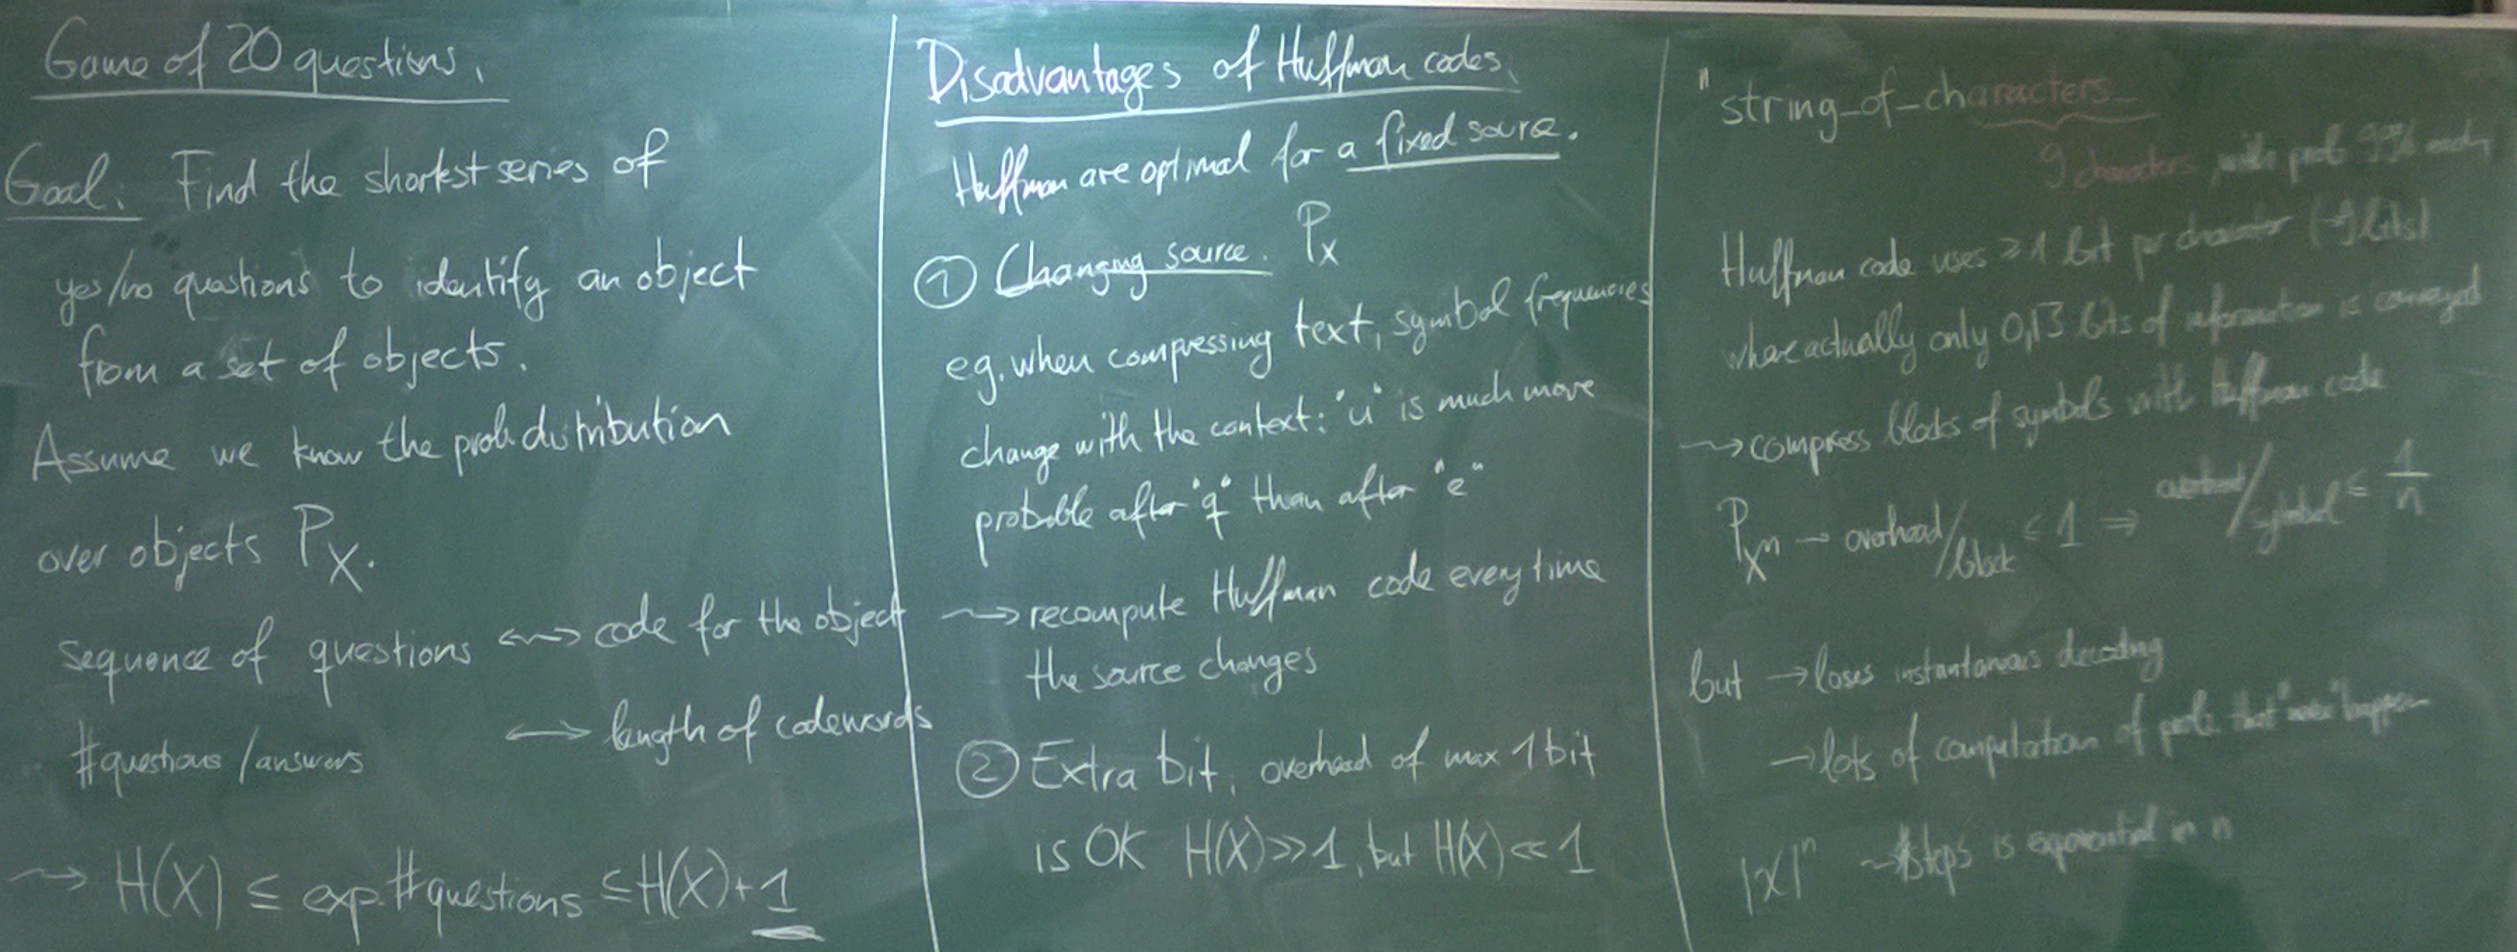 Game of 20 questions.
Goal: Find the shortest series of
yes/no questions to identify an object
from a set of objects.
Assume we know the prob. distribution
over objects P_X.
sequence of questions ⟷ code for the object
#questions/answers ⟷ length of codewords
⇝ H(X) ≤ exp. #questions ≤ H(X)+1
Disadvantages of Huffman codes.
Huffman are optimal for a fixed source.
① Changing source. P_X
eg. when compressing text, symbol frequencies
change with the context: "u" is much more
probable after "q" than after "e"
⇝ recompute Huffman code every time
the source changes
② Extra bit, overhead of max 1 bit
is OK H(X)≫1, but H(X)≪1
"string_of_characters_
9 characters with prob 99% each
Huffman code uses ≥ 1 bit per character (→9 bits)
where actually only 0,13 bits of information is conveyed
⇝ compress blocks of symbols with Huffman code
P_X^n → overhead/block ≤ 1 ⇒ overhead/symbol ≤ 1/n
but → loses instantaneous decoding
→ lots of computation of prob. that "never" happen
|X|^n ⇝ #steps is exponential in n